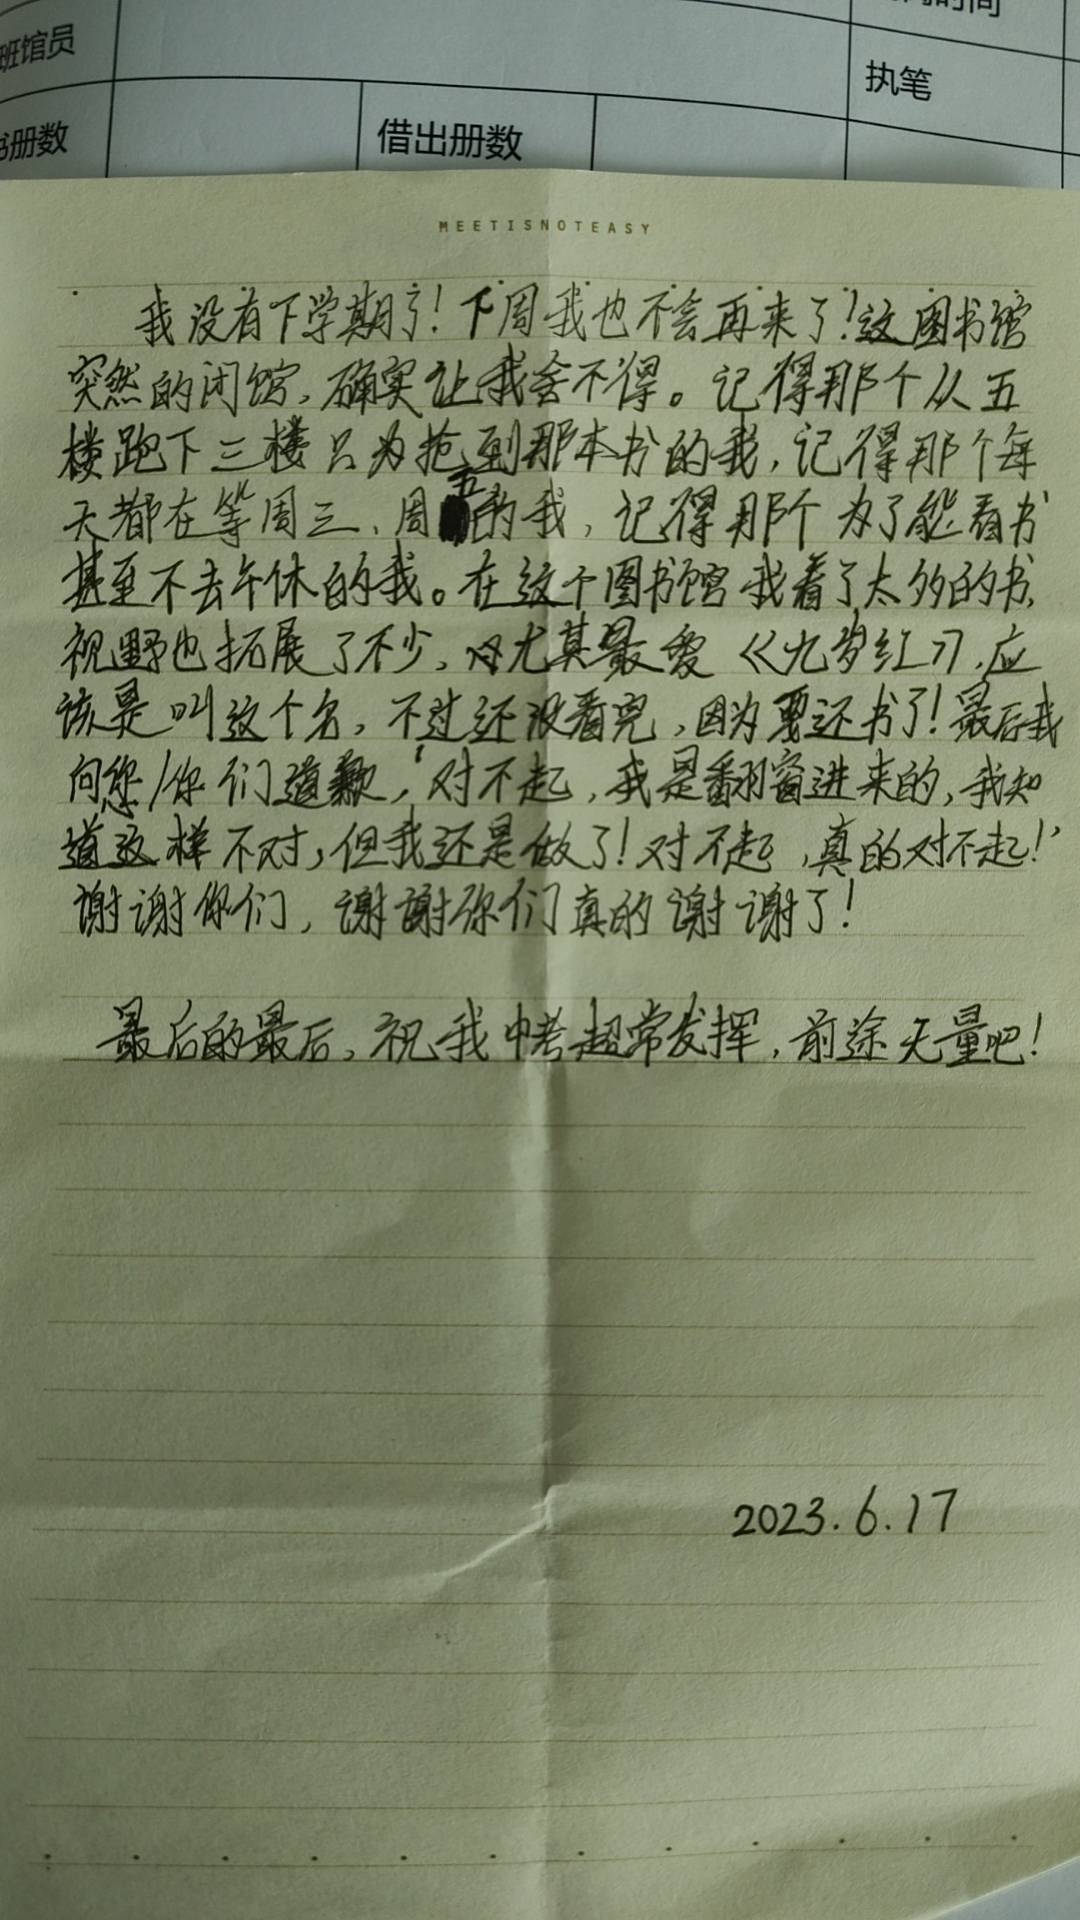 班馆员
时间
执笔
书册数
借出册数
MEETISNOTEASY
我没有下学期了!下周我也不会再来了!这图书馆
突然的闭馆,确实让我舍不得。记得那个从五
楼跑下三楼只为抢到那本书的我,记得那个每
天都在等周三、周五的我,记得那个为了能看书
甚至不去午休的我。在这个图书馆我看了太多的书,
视野也拓展了不少,尤其最爱《九岁红》,应
该是叫这个名,不过还没看完,因为要还书了!最后我
向您/你们道歉,对不起,我是翻窗进来的,我知
道这样不对,但我还是做了!对不起,真的对不起!
谢谢你们,谢谢你们真的谢谢了!
最后的最后,祝我中考超常发挥,前途无量吧!
2023.6.17